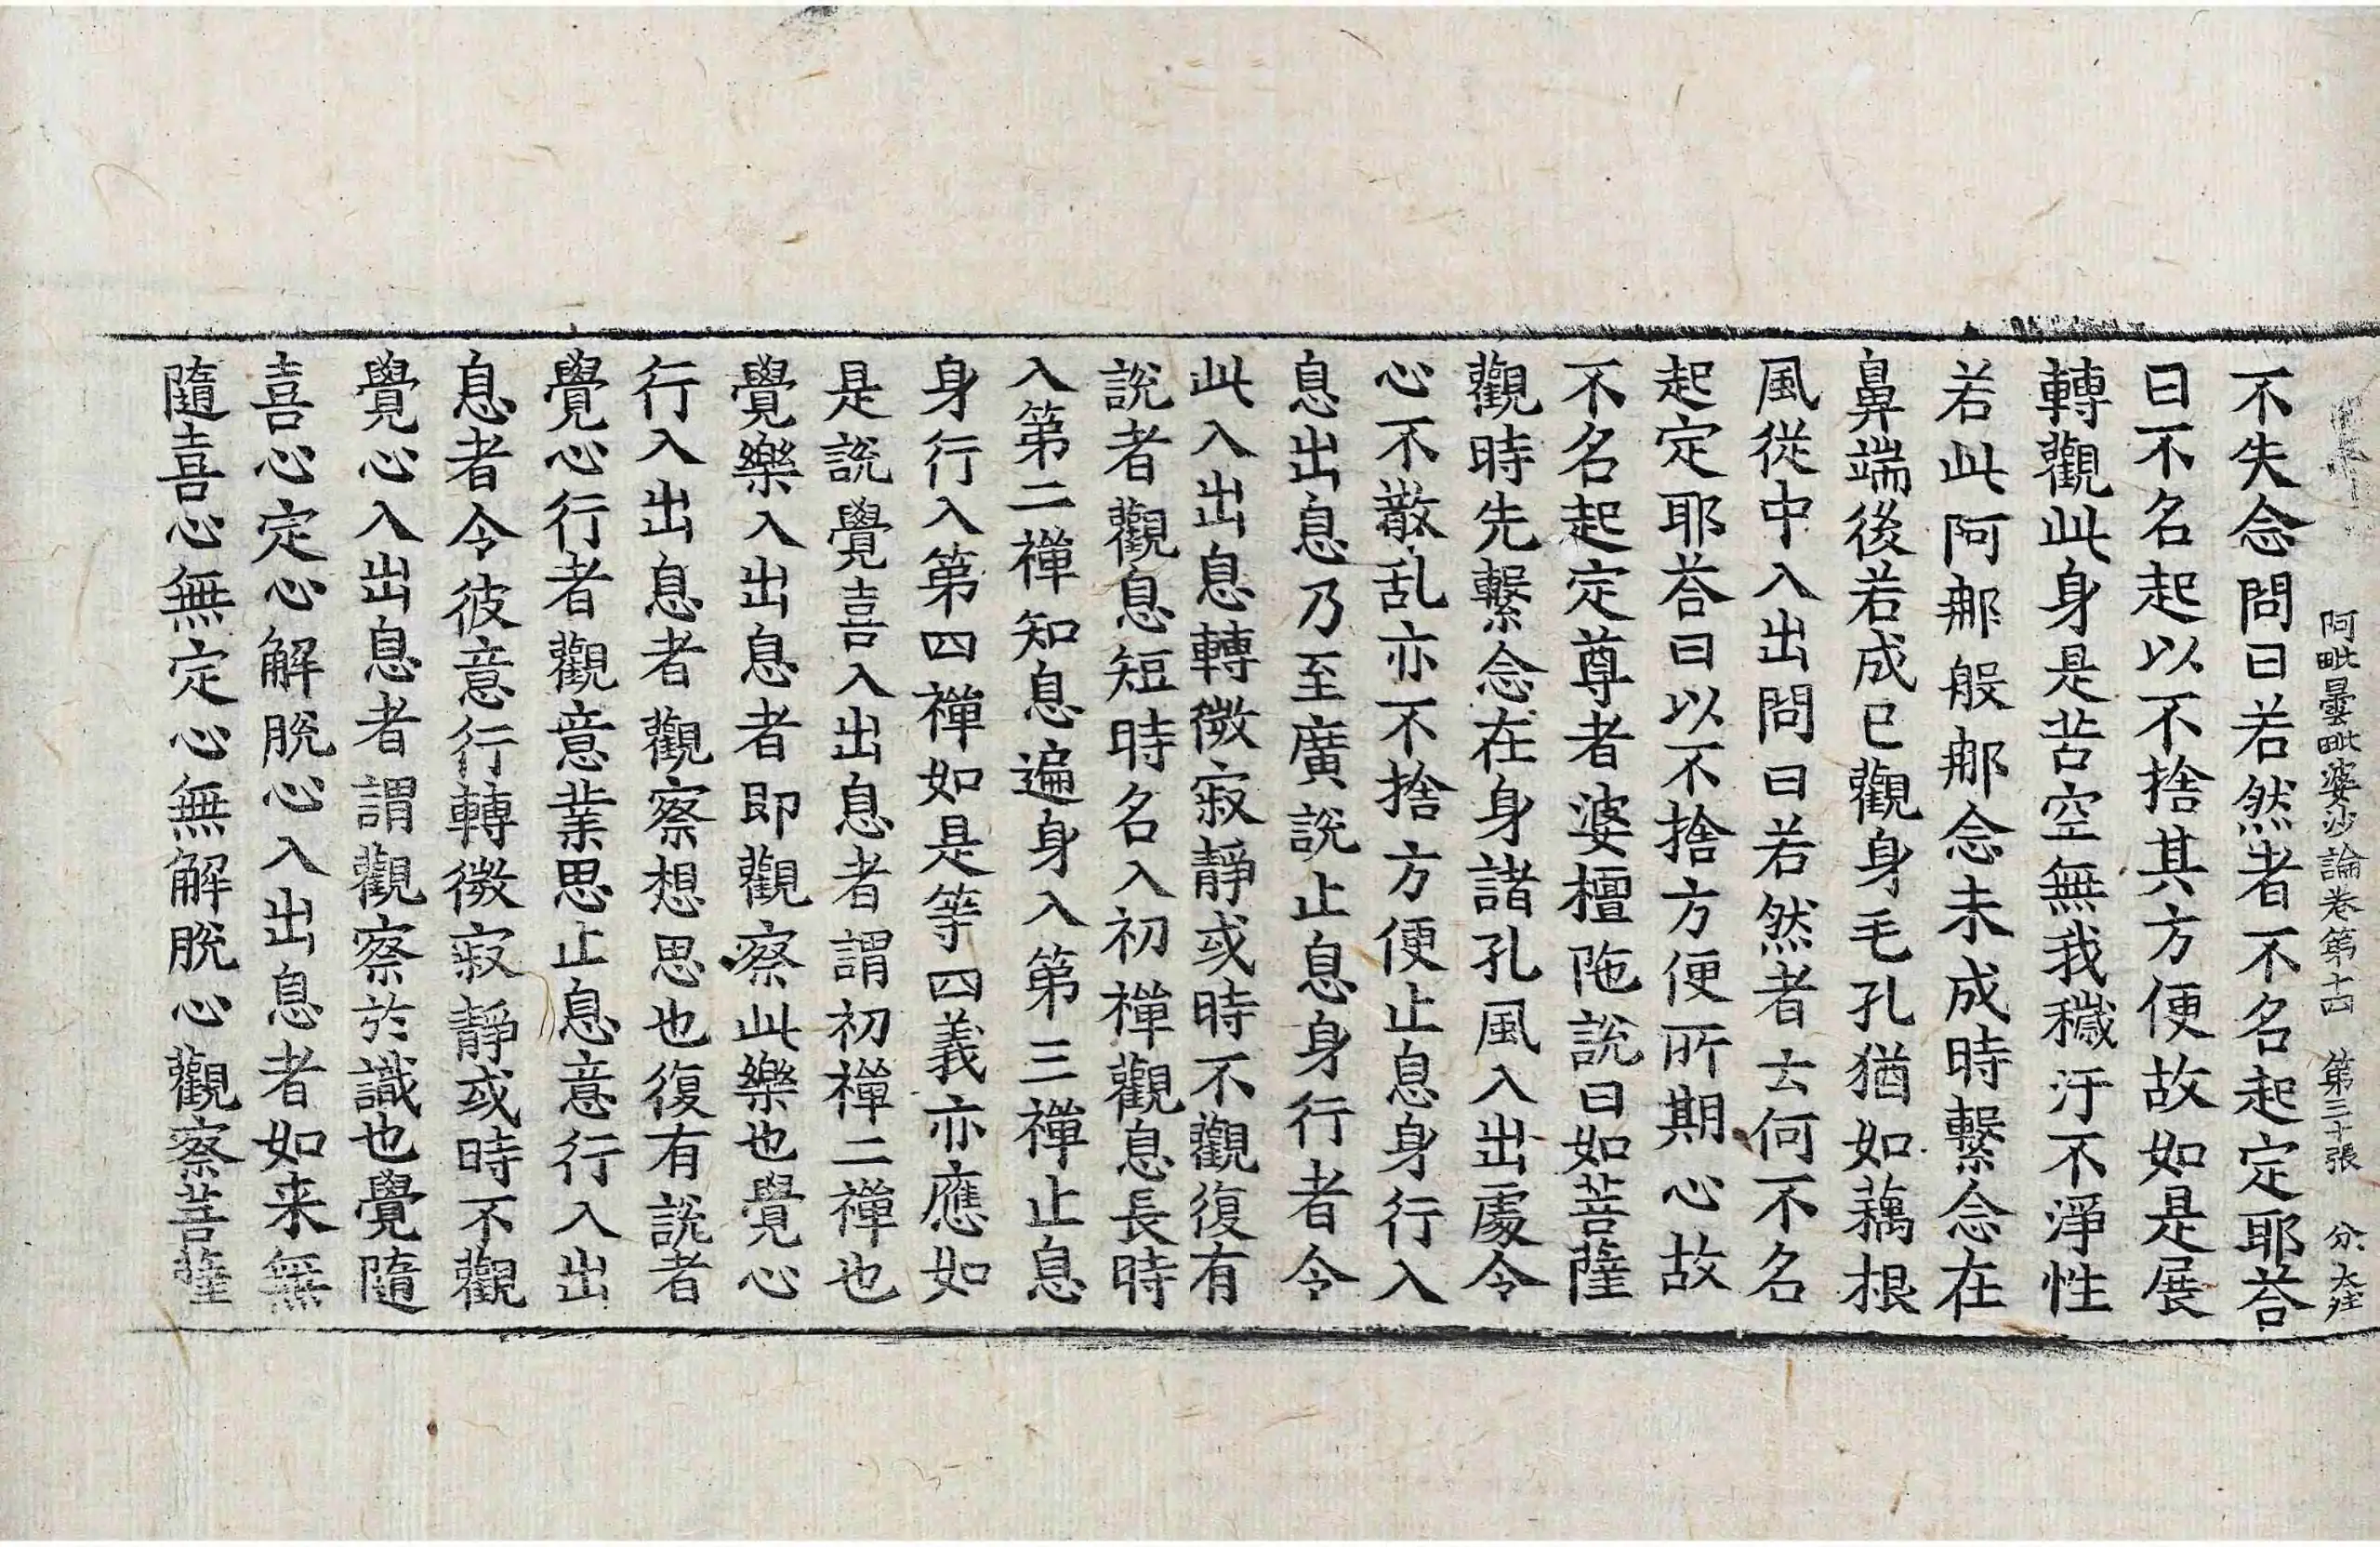 阿毗曇毗婆沙論卷第十四　第三十張　分　大莊
不失念問曰若然者不名起定耶荅
曰不名起以不捨其方便故如是展
轉觀此身是苦空無我穢汙不淨性
若此阿那般那念未成時繫念在
鼻端後若成已觀身毛孔猶如藕根
風從中入出問曰若然者云何不名
起定耶荅曰以不捨方便所期心故
不名起定尊者婆檀陁說曰如菩薩
觀時先繫念在身諸孔風入出處令
心不散乱亦不捨方便止息身行入
息出息乃至廣說止息身行者令
此入出息轉微寂靜或時不觀復有
說者觀息短時名入初禪觀息長時
入第二禪知息遍身入第三禪止息
身行入第四禪如是等四義亦應如
是說覺喜入出息者謂初禪二禪也
覺樂入出息者即觀察此樂也覺心
行入出息者觀察想思也復有說者
覺心行者觀意業思止息意行入出
息者令彼意行轉微寂靜或時不觀
覺心入出息者謂觀察於識也覺隨
喜心定心解脫心入出息者如来無
隨喜心無定心無解脫心觀察菩薩